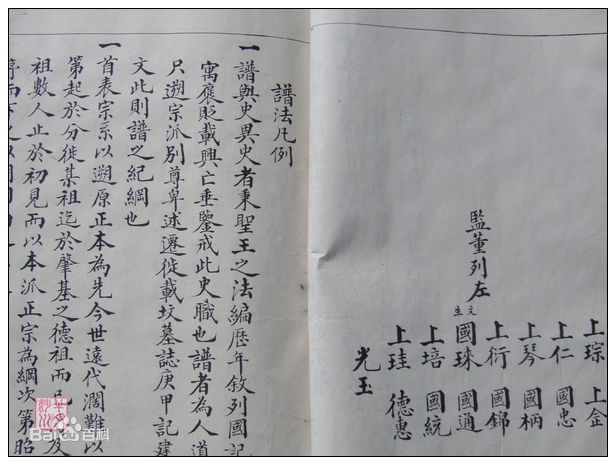 監董列左
上琮 上金
上仁 國忠
上琴 國柄
上衍 國錦
文生 國琜 國通
上培 國統
上珪 德惠
光玉
譜法凡例
一譜與史異史者秉聖王之法編歷年敘列國記
寓褒貶載興亡垂鑒戒此史職也譜者為人道
只遡宗派別尊卑述遷徙載坟墓誌庚甲記建
文此則譜之紀綱也
一首表宗系以遡原正本為先今世遠代濶難以
第起於分徙某祖迄於肇基之德祖而凡及
祖數人止於初見而以本派正宗為綱次第昭
Bai百科